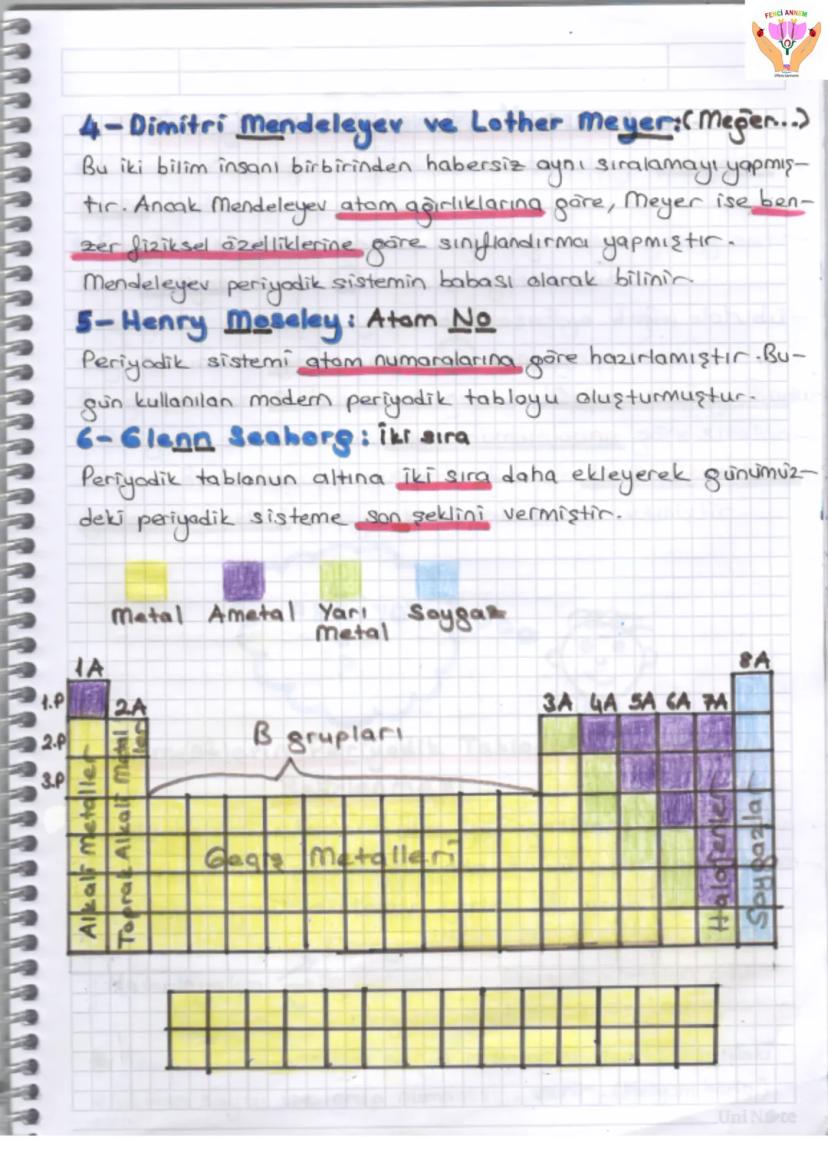 FENCİ ANNEM
4-Dimitri Mendeleyev ve Lother Meyer:(Meğer...)
Bu iki bilim insanı birbirinden habersiz aynı sıralamayı yapmış-
tır. Ancak Mendeleyev atom ağırlıklarına göre, Meyer ise ben-
zer fiziksel özelliklerine göre sınıflandırma yapmıştır.
Mendeleyev periyodik sistemin babası olarak bilinir.
5-Henry Moseley: Atom No
Periyodik sistemi atom numaralarına göre hazırlamıştır. Bu-
gün kullanılan modern periyodik tabloyu oluşturmuştur.
6-Glenn Seaborg: İki sıra
Periyodik tablonun altına iki sıra daha ekleyerek günümüz-
deki periyodik sisteme son şeklini vermiştir.
Metal Ametal Yarı Metal Soygaz
1A 8A
1.P 2A 3A 4A 5A 6A 7A
2.P B grupları
3.P
Alkali Metaller
Toprak Alkali Metaller
Geçiş Metalleri
Halojenler
Soygazlar
UniNote